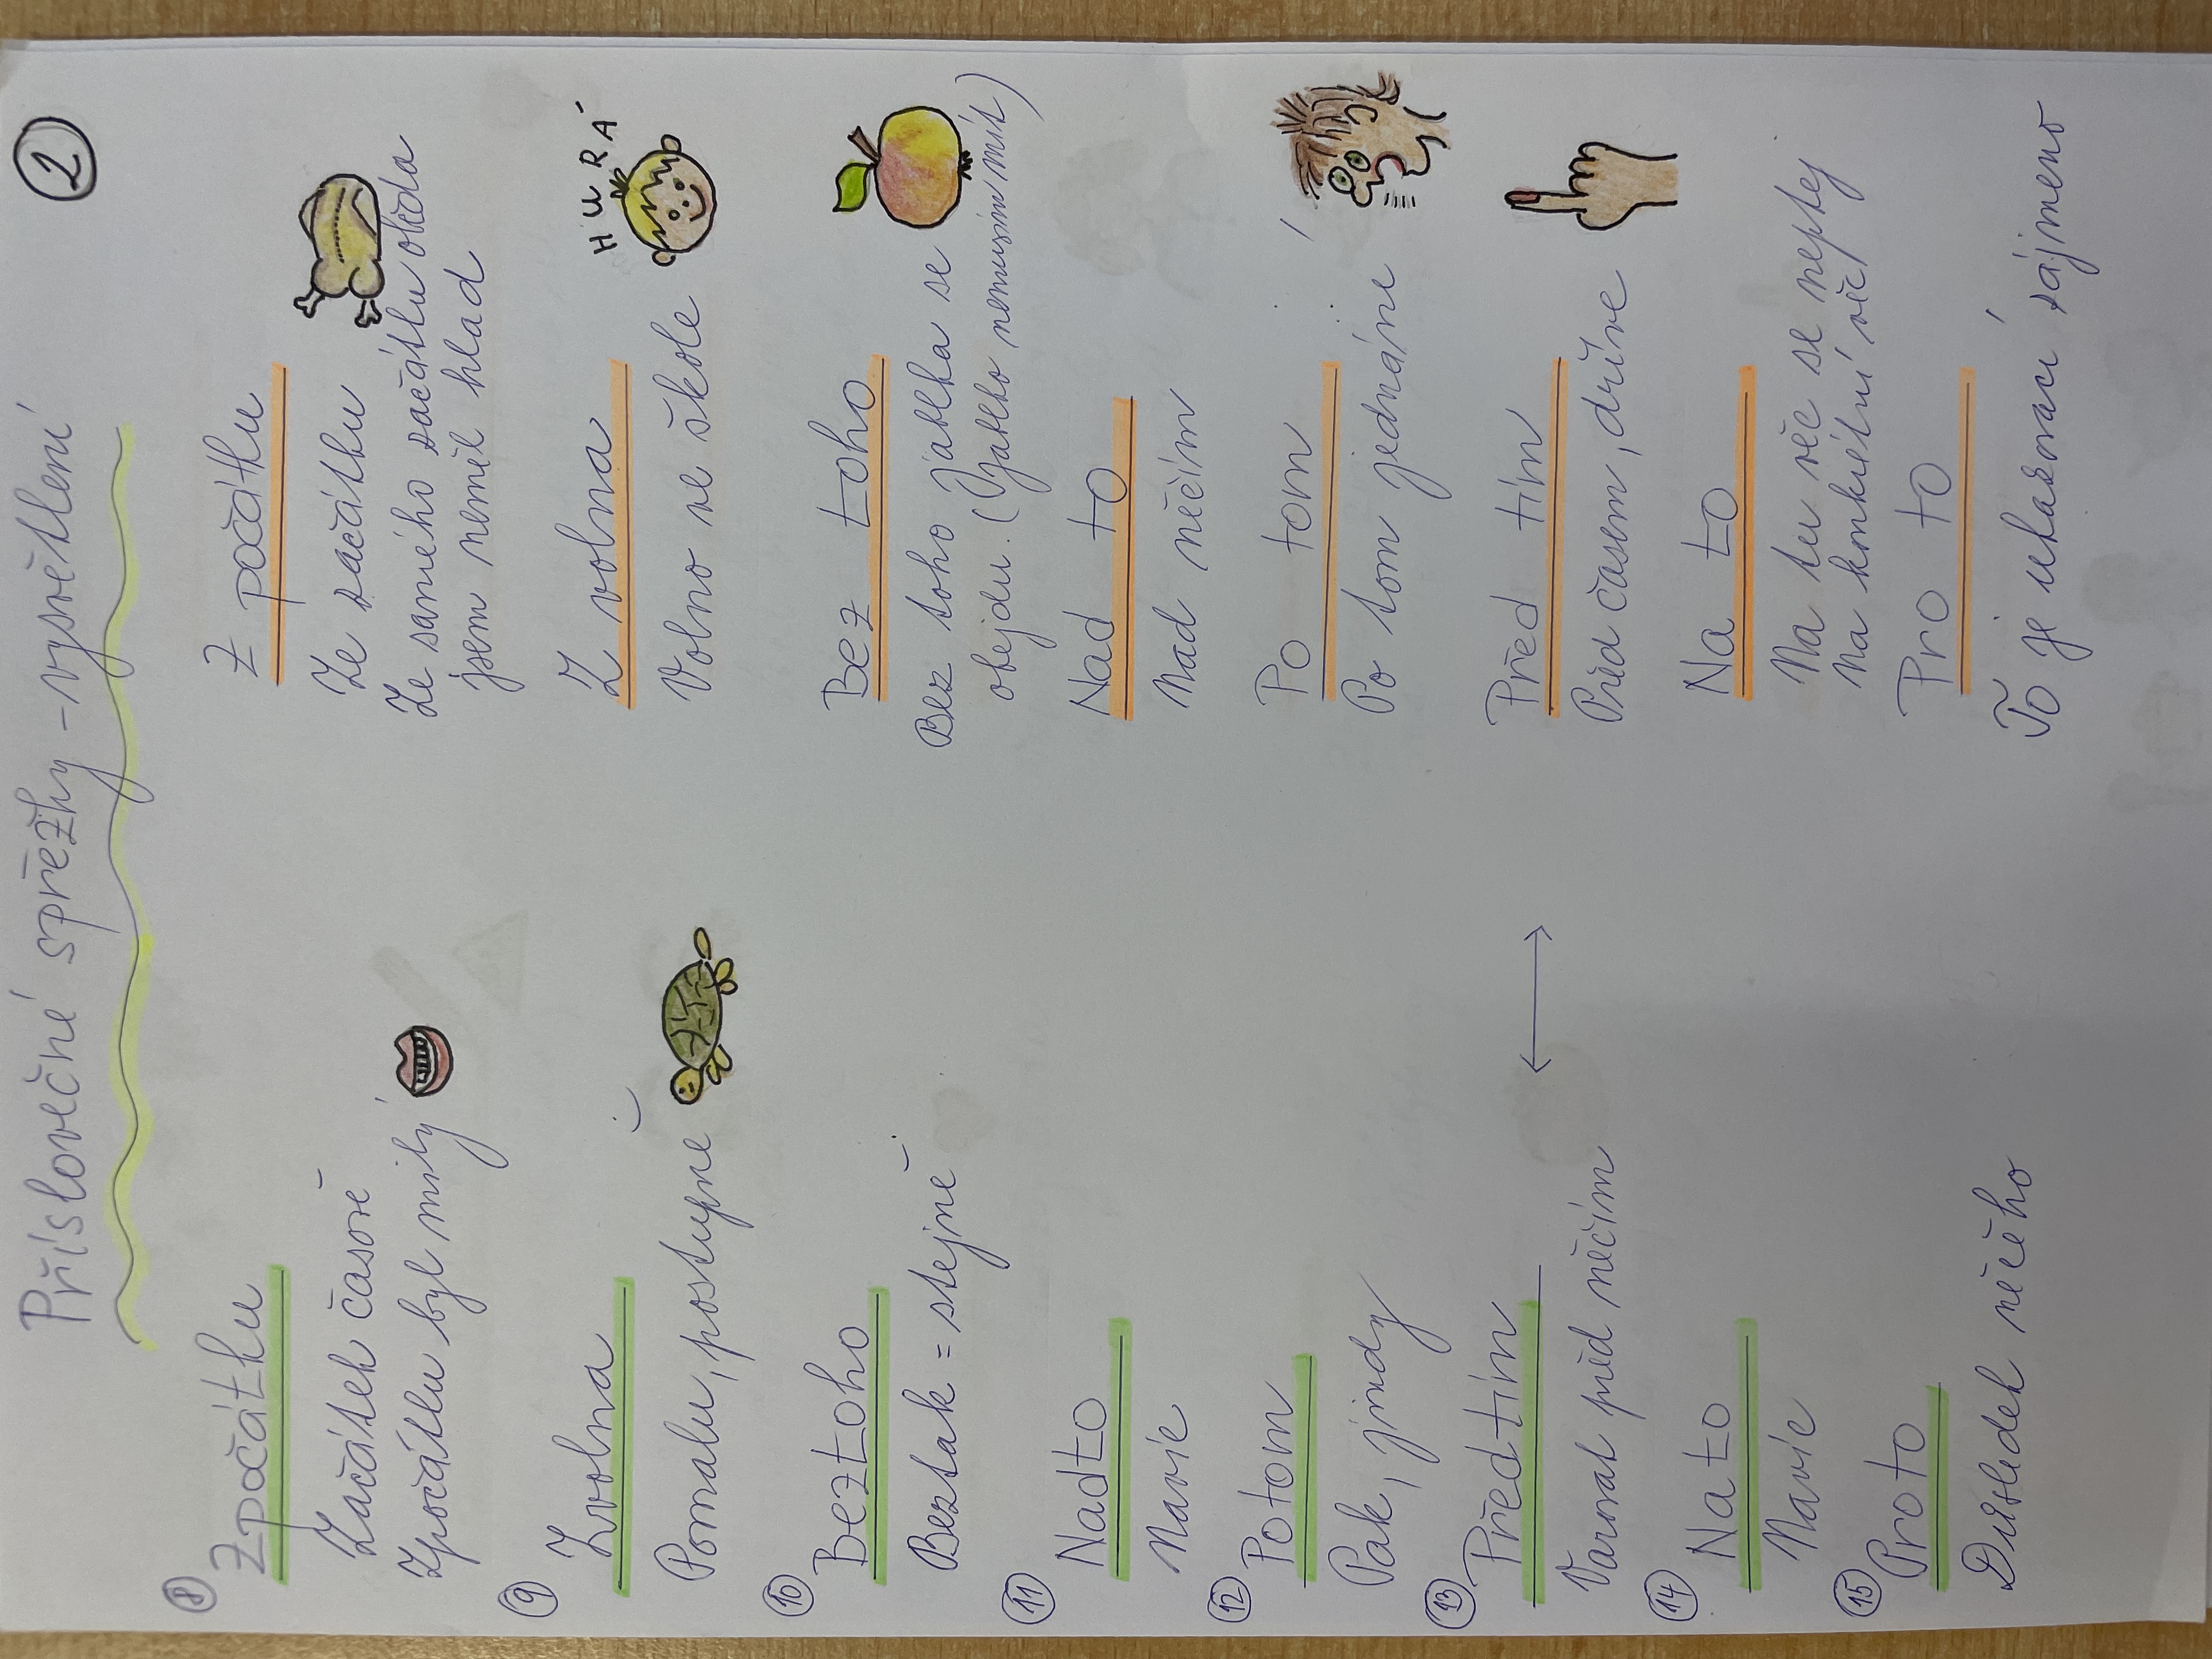 Příslovečné spřežky - vysvětlení
2
8 Zpočátku
Začátek časově
Zpočátku byl milý
Z počátku
Ze začátku
Ze samého začátku oběda
jsem neměl hlad
9 Zvolna
Pomalu, postupně
Z volna
Volno ve škole
HURÁ
10 Beztoho
Beztak = stejně
Bez toho
Bez toho jablka se
obejdu. (Jablko nemusím mít)
11 Nadto
Navíc
Nad to
Nad něčím
12 Potom
Pak, jindy
Po tom
Po tom jednání
13 Předtím
Varovat před něčím
Před tím
Před časem, dříve
14 Nato
Navíc
Na to
Na tu věc se neptej
Na konkrétní věc
15 Proto
Důsledek něčeho
Pro to
To je ukazovací zájmeno